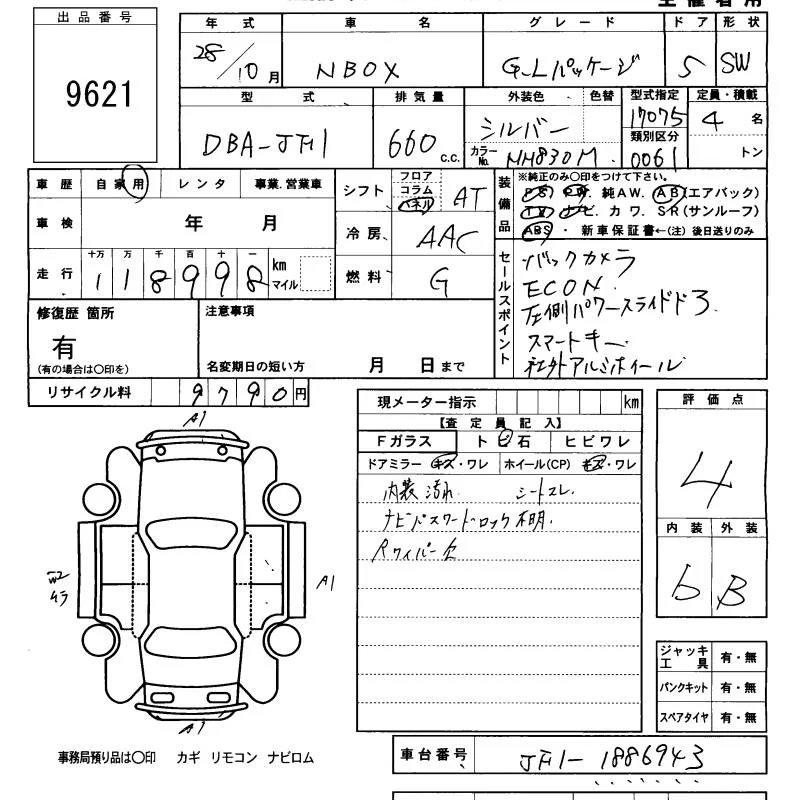 出品番号
9621
年式 車名 グレード ドア 形状
28/10月 NBOX G・Lパッケージ 5 SW
型式 排気量 外装色 色替 型式指定 定員・積載
DBA-JF1 660 c.c. シルバー 17075 4 名
カラーNo. NH830M 類別区分 0061 トン
車歴 自家用 レンタ 事業.営業車
シフト フロア コラム パネル AT
車検 年 月
冷房 AAC
走行 十万 万 千 百 十 一 km マイル
118998
燃料 G
装備品
※純正のみ○印をつけて下さい。
PS PW. 純AW. AB(エアバック)
TV ナビ. カワ. SR(サンルーフ)
ABS ・ 新車保証書←(注)後日送りのみ
セールスポイント
バックカメラ
ECON
左側パワースライドドア
スマートキー
社外アルミホイール
修復歴 箇所
有
(有の場合は○印を)
注意事項
名変期日の短い方 月 日まで
リサイクル料 9790円
現メーター指示 km
【査定員記入】
Fガラス トビ石 ヒビワレ
ドアミラー キズ・ワレ ホイール(CP) キズ・ワレ
内装汚れ シートスレ
ナビパスワードロック不明.
Rワイパー欠
評価点
4
内装 外装
b B
ジャッキ工具 有・無
パンクキット 有・無
スペアタイヤ 有・無
A1
W2
ムラ
A1
A1
事務局預り品は○印 カギ リモコン ナビロム
車台番号 JF1-1886943